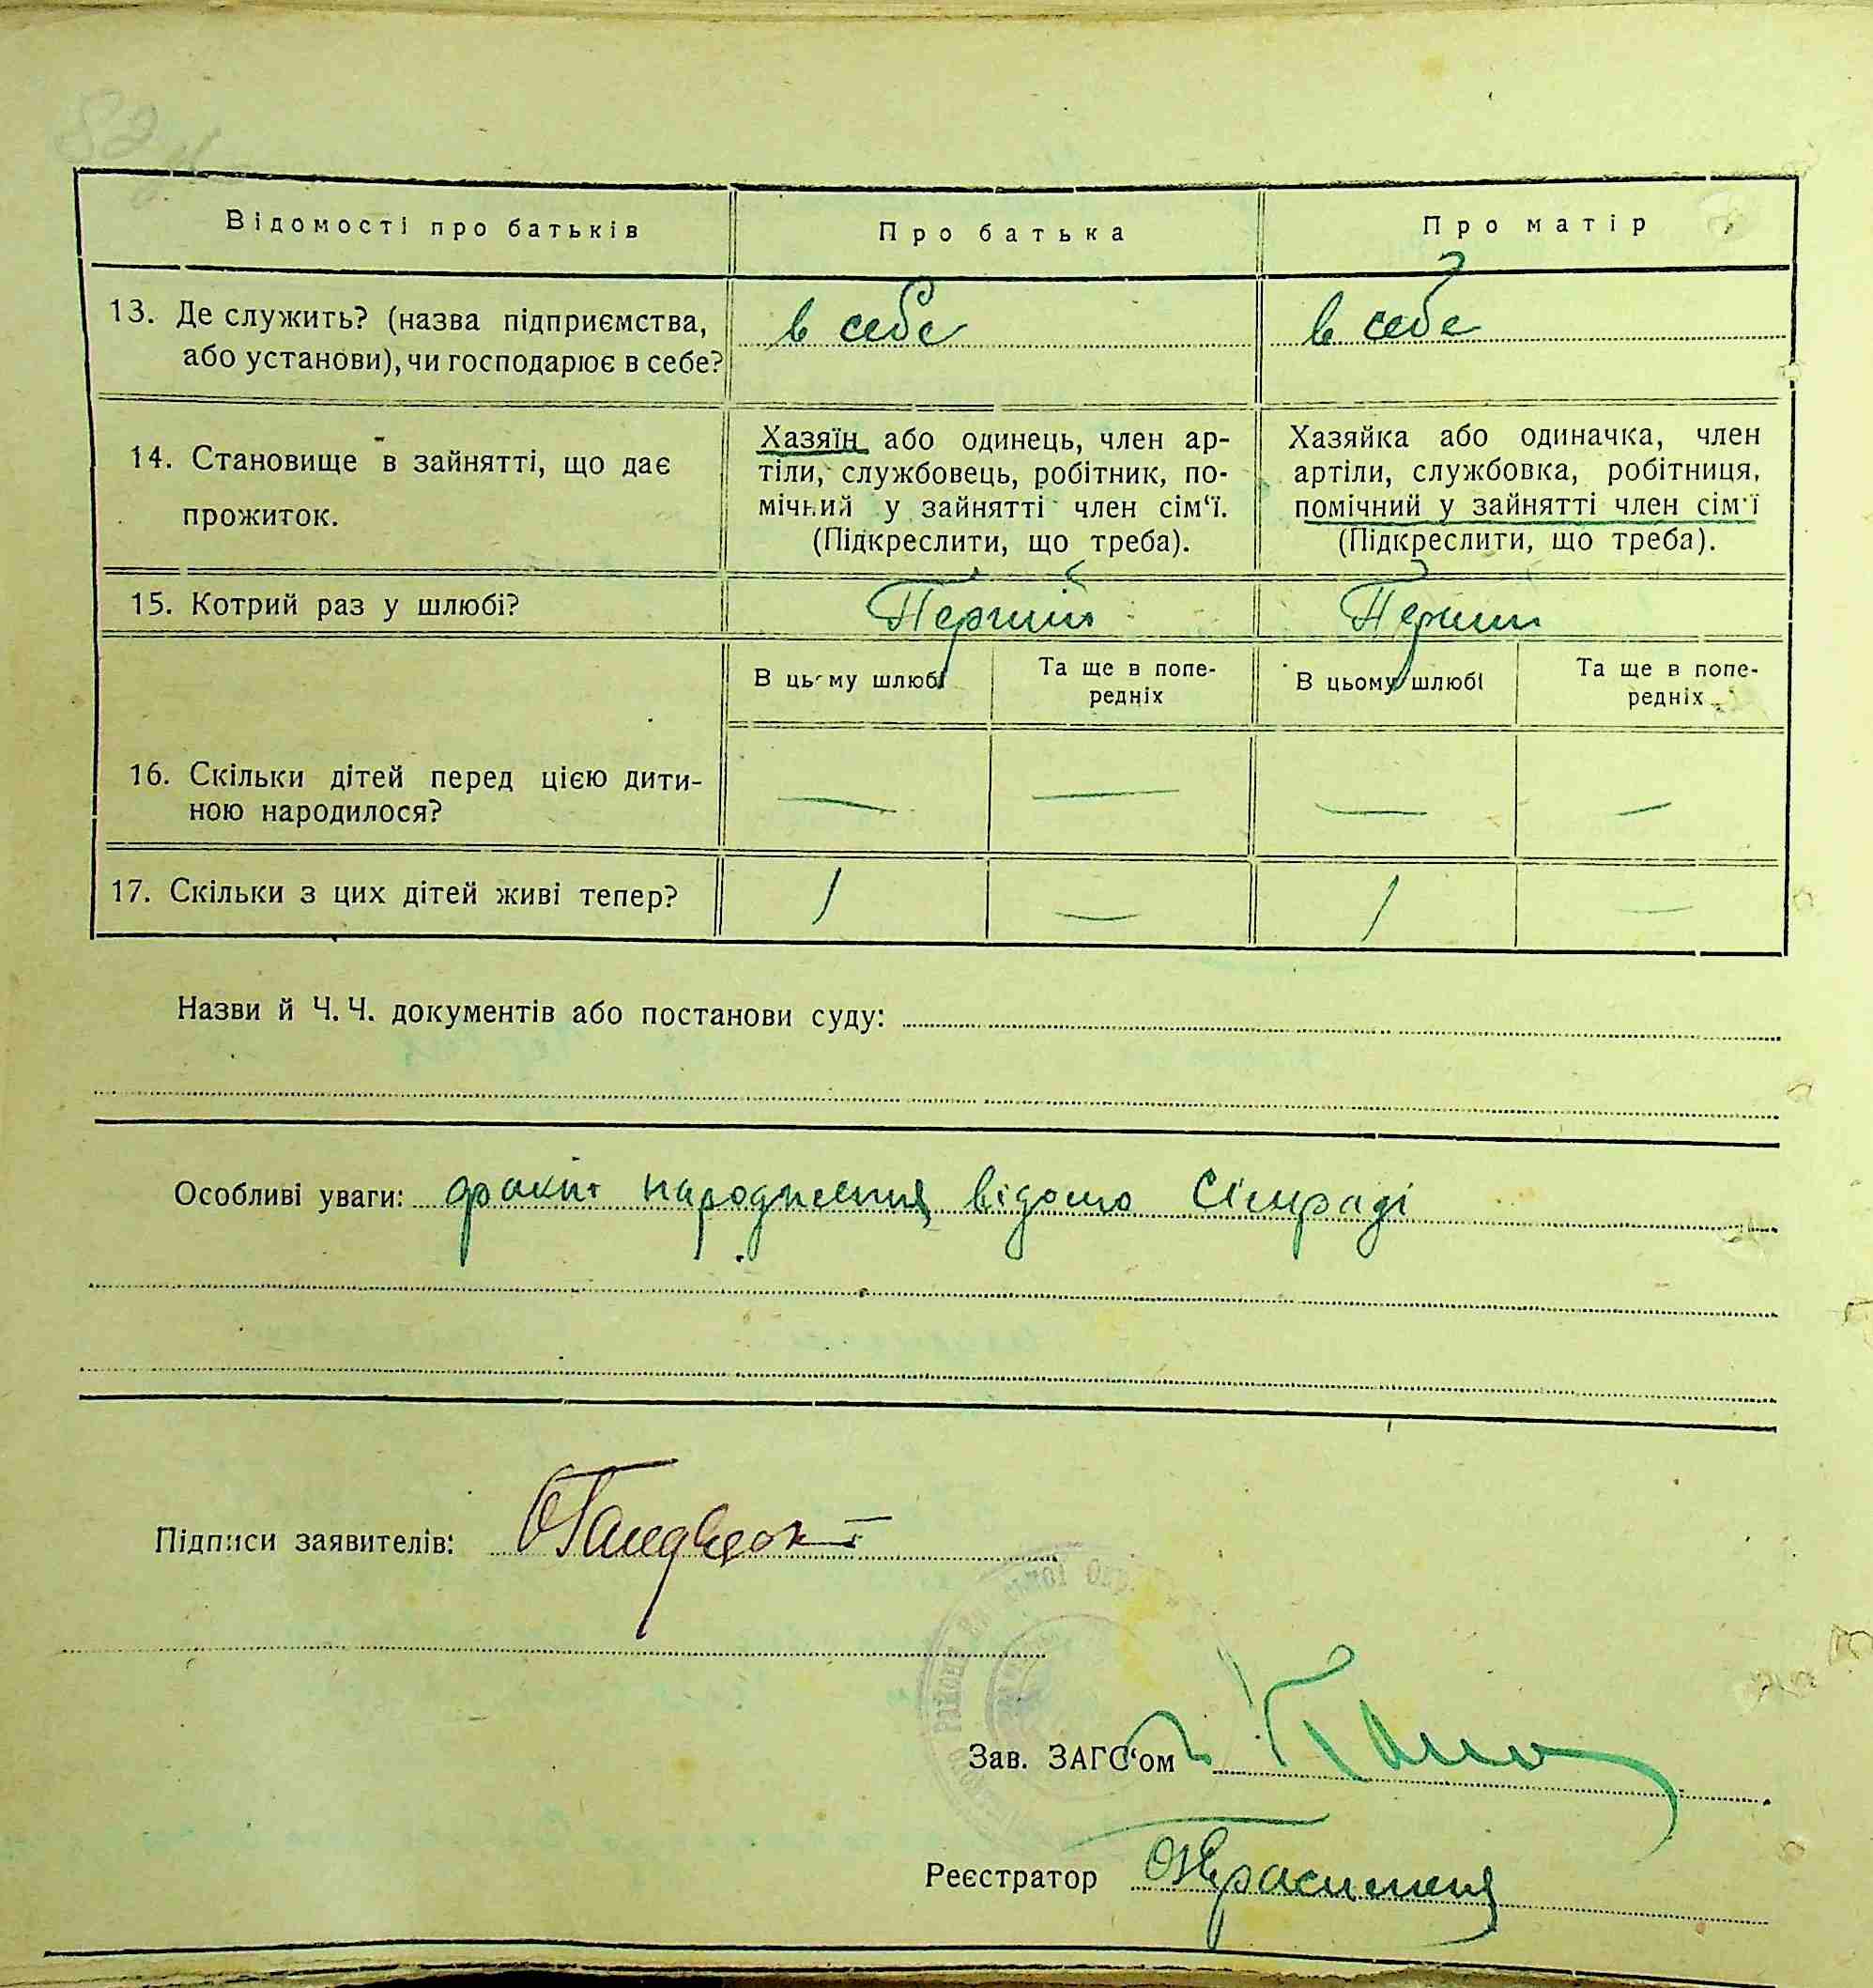 Відомості про батьків
Про батька
Про матір
13. Де служить? (назва підприємства,
або установи), чи господарює в себе?
в себе
в себе
14. Становище в зайнятті, що дає
прожиток.
Хазяїн або одинець, член ар-
тіли, службовець, робітник, по-
мічний у зайнятті член сім'ї.
(Підкреслити, що треба).
Хазяйка або одиначка, член
артіли, службовка, робітниця,
помічний у зайнятті член сім'ї
(Підкреслити, що треба).
15. Котрий раз у шлюбі?
Перший
Перший
В цьому шлюбі
Та ще в попе-
редніх
В цьому шлюбі
Та ще в попе-
редніх
16. Скільки дітей перед цією дити-
ною народилося?
—
—
—
—
17. Скільки з цих дітей живі тепер?
1
—
1
—
Назви й Ч. Ч. документів або постанови суду:
Особливі уваги: факт народження відомо Сільраді
Підписи заявителів:
Зав. ЗАГС'ом
Реєстратор